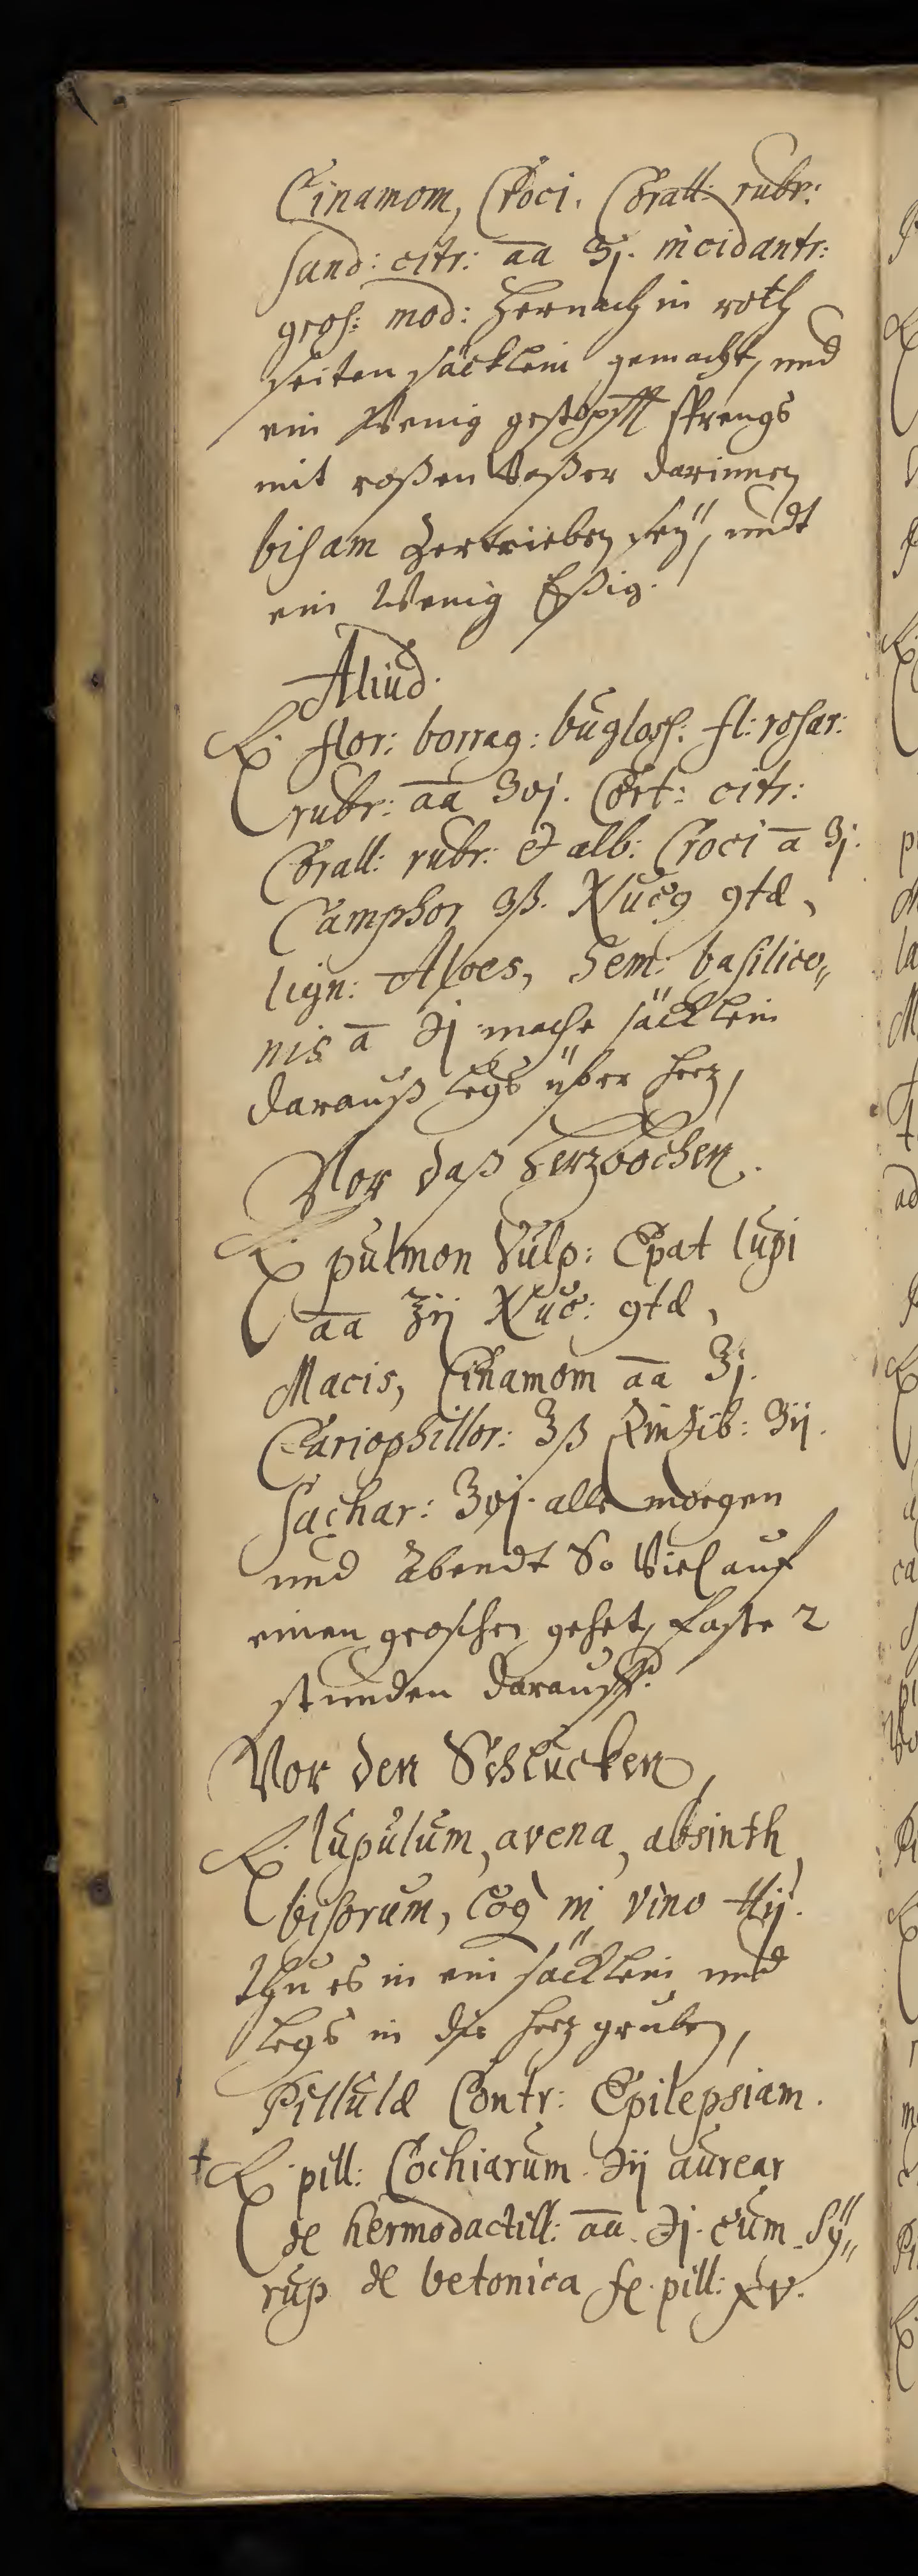 Cinamom, Croci. Corall: rubr:
sand: citr: aa ʒj. incidantr:
gros: mod: Hernach in roth
seiten säcklein gemacht, und
ein Wenig gestopfft sprengs
mit roßen Waßer darinnen
bisam Zertrieben seÿ, undt
ein Wenig Eßig.
Aliud.
℞. flor: borrag: bugloss. fl: rosar:
rubr: aa ʒvj. Cort: citr:
Corall: rubr: et alb: Croci a ʒj.
Camphor ʒß. Nucꝯ ꝯtæ,
lign: Aloes, Sem: basilico„
nis a ℈j mache säcklein
darauß legs über Herz,
Vor daß Herzbochen.
℞. pulmon Vulp: Epat lupi
aa ℥ij Nuc: ꝯtæ,
Macis, Cinamom aa ʒj.
Cariophillor: ʒß Zinzib: ʒij.
Sachar: ʒvj. alle morgen
und Abendt So Viel auf
einen groschen gehet, faste 2
stunden darauff.
Vor den Schlucken,
℞. lupulum, avena, absinth
bisorum, Coq in vino ℔ij.
thu es in ein säcklein und
legs in die Herz gruben,
Pillulæ Contr: Epilepsiam.
† ℞. pill: Cochiarum ℈ij aurear
de hermodactill: aa. ℈j. cum Sÿ„
rup de betonica f. pill: xv.